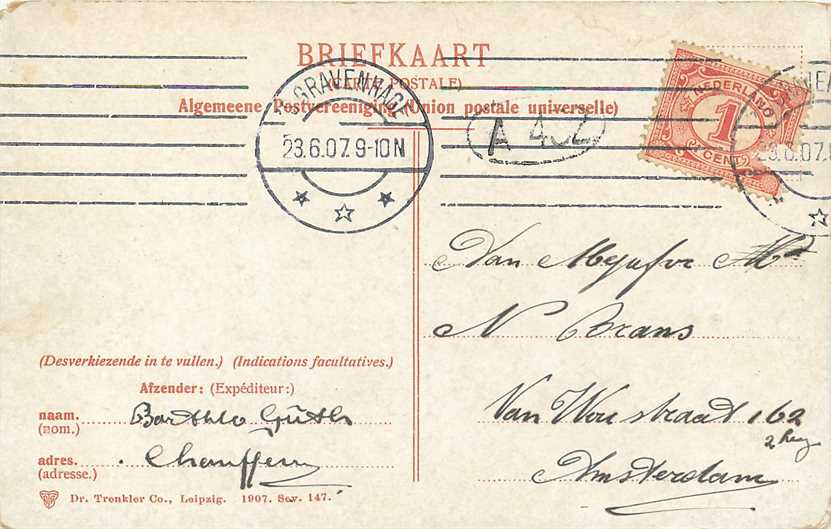 BRIEFKAART
(CARTE POSTALE)
Algemeene Postvereeniging (Union postale universelle)
'S GRAVENHAGE
23.6.07. 9-10N
A 452
NEDERLAND
1
CENT
23.6.07. 9
N Brans
Van Wou straat 162
2 
Amsterdam
(Desverkiezende in te vullen.) (Indications facultatives.)
Afzender: (Expéditeur:)
naam. Barthlo Güth
(nom.)
adres. Chauffeur
(adresse.)
Dr. Trenkler Co., Leipzig. 1907. Sev. 147.